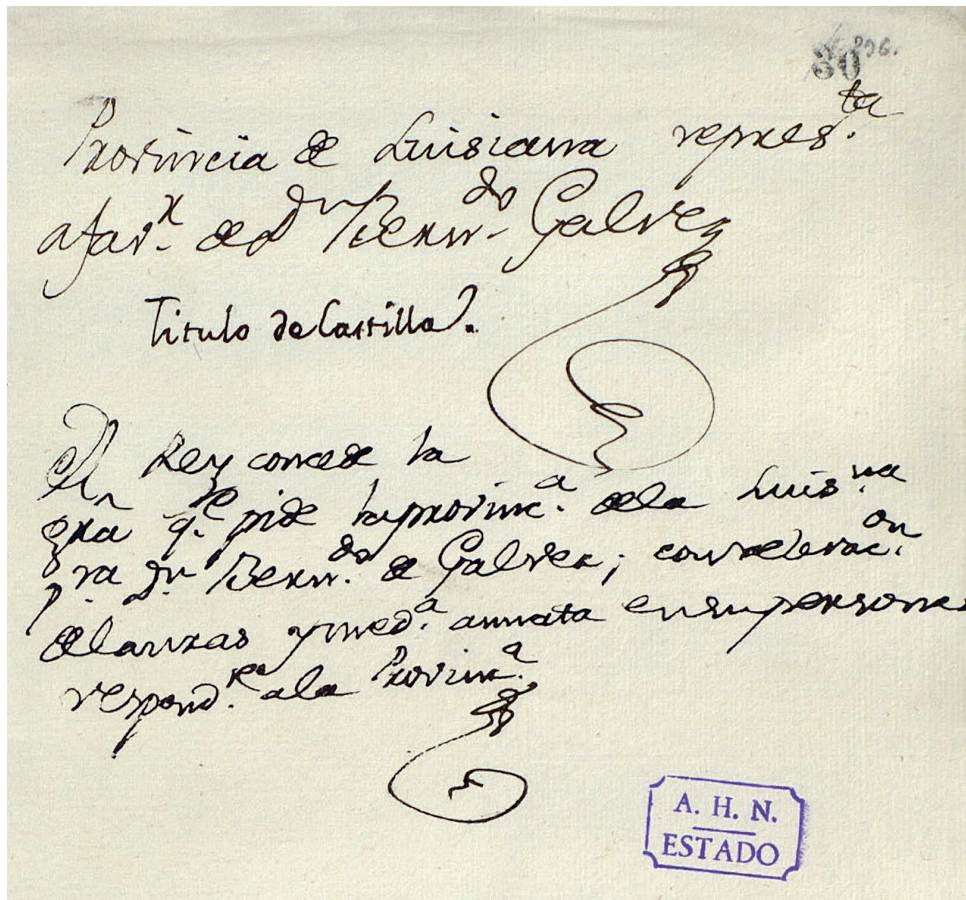 30 896.
Provincia de Luisiana repres.ta
a fav.r de Dn Bern.do Galvez
Titulo de Castilla.
El Rey concede la
gra q.e pide la provinc.a de la Luis.na
p.ra Dn Bern.do de Galvez; con relevac.on
de lanzas y med.a annata en su persona
respond.se a la Provinc.a
A. H. N.
ESTADO